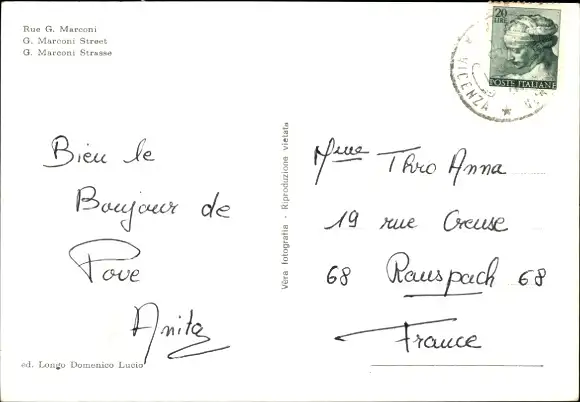 Rue G. Marconi
G. Marconi Street
G. Marconi Strasse
20
LIRE
POSTE ITALIANE
VICENZA
Bien le
Bonjour de
Pove
Anita
ed. Longo Domenico Lucio
Vera fotografia - Riproduzione vietata
Mme Thro Anna
19 rue Creuse
68 Rauspach 68
France